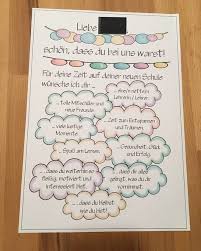 Liebe
schön, dass du bei uns warst!
Für deine Zeit auf deiner neuen Schule
wünsche ich dir...
...tolle Mitschüler
und neue
Freunde.
...eine/n nette/n
Lehrerin / Lehrer.
...viele lustige
Momente.
...Zeit zum Entspannen
und Träumen.
...Spaß am Lernen.
...Gesundheit, Glück
und Erfolg.
...dass du weiterhin so
fleißig, motiviert und
interessiert bist.
...dass du alles
schaffst, was du dir
vornimmst.
...dass du bleibst
wie du bist!